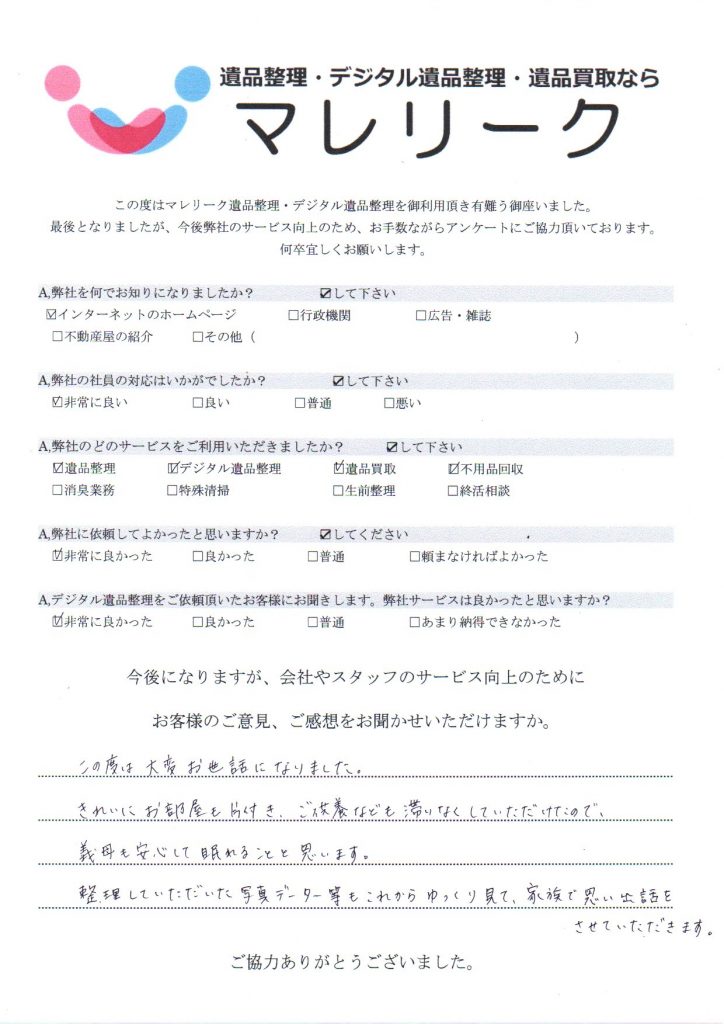 遺品整理・デジタル遺品整理・遺品買取なら
マレリーク
この度はマレリーク遺品整理・デジタル遺品整理を御利用頂き有難う御座いました。
最後となりましたが、今後弊社のサービス向上のため、お手数ながらアンケートにご協力頂いております。
何卒宜しくお願いします。
A,弊社を何でお知りになりましたか？ ☑して下さい
☑インターネットのホームページ □行政機関 □広告・雑誌
□不動産屋の紹介 □その他（ ）
A,弊社の社員の対応はいかがでしたか？ ☑して下さい
☑非常に良い □良い □普通 □悪い
A,弊社のどのサービスをご利用いただきましたか？ ☑して下さい
☑遺品整理 ☑デジタル遺品整理 ☑遺品買取 ☑不用品回収
□消臭業務 □特殊清掃 □生前整理 □終活相談
A,弊社に依頼してよかったと思いますか？ ☑してください
☑非常に良かった □良かった □普通 □頼まなければよかった
A,デジタル遺品整理をご依頼頂いたお客様にお聞きします。弊社サービスは良かったと思いますか？
☑非常に良かった □良かった □普通 □あまり納得できなかった
今後になりますが、会社やスタッフのサービス向上のために
お客様のご意見、ご感想をお聞かせいただけますか。
この度は大変お世話になりました。
きれいにお部屋も片付き、ご供養なども滞りなくしていただけたので、
義母も安心して眠れることと思います。
整理していただいた写真データー等もこれからゆっくり見て、家族で思い出話を
させていただきます。
ご協力ありがとうございました。